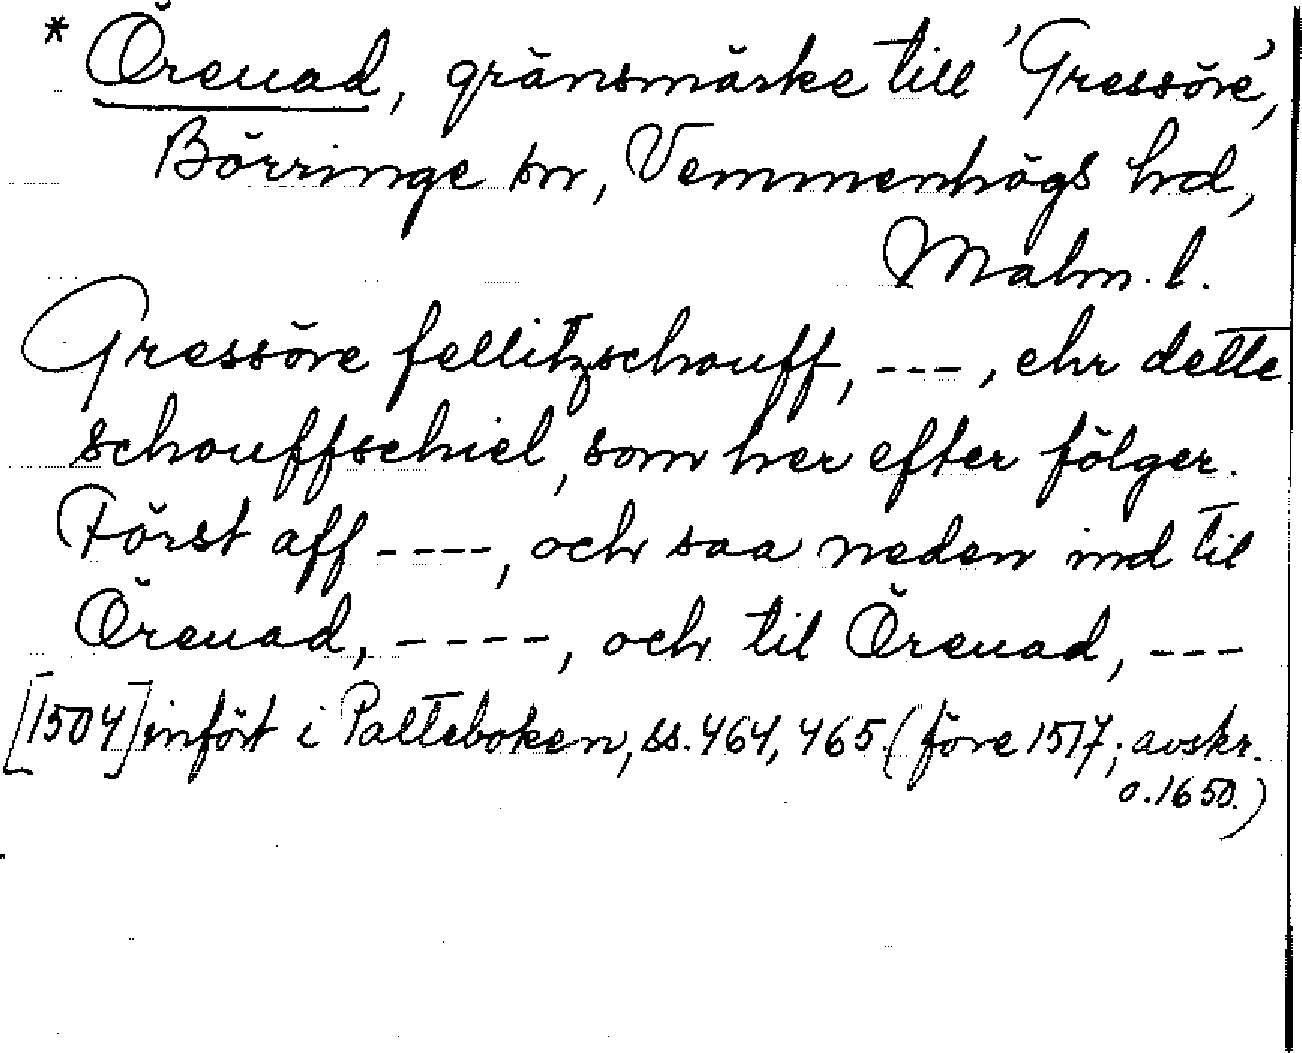 * Öreuad, gränsmärke till 'Gressöre',
Börringe sn, Vemmenhögs hd,
Malm. l.
Gressöre fellitzschouff, ---, ehr dette
schouffschiel, som her efter fölger.
Först aff ----, och saa neden ind til
Öreuad, ----, och til Öreuad, ---
[1504] infört i Palteboken, ss. 464, 465. (före 1517; avskr.
o. 1650.)